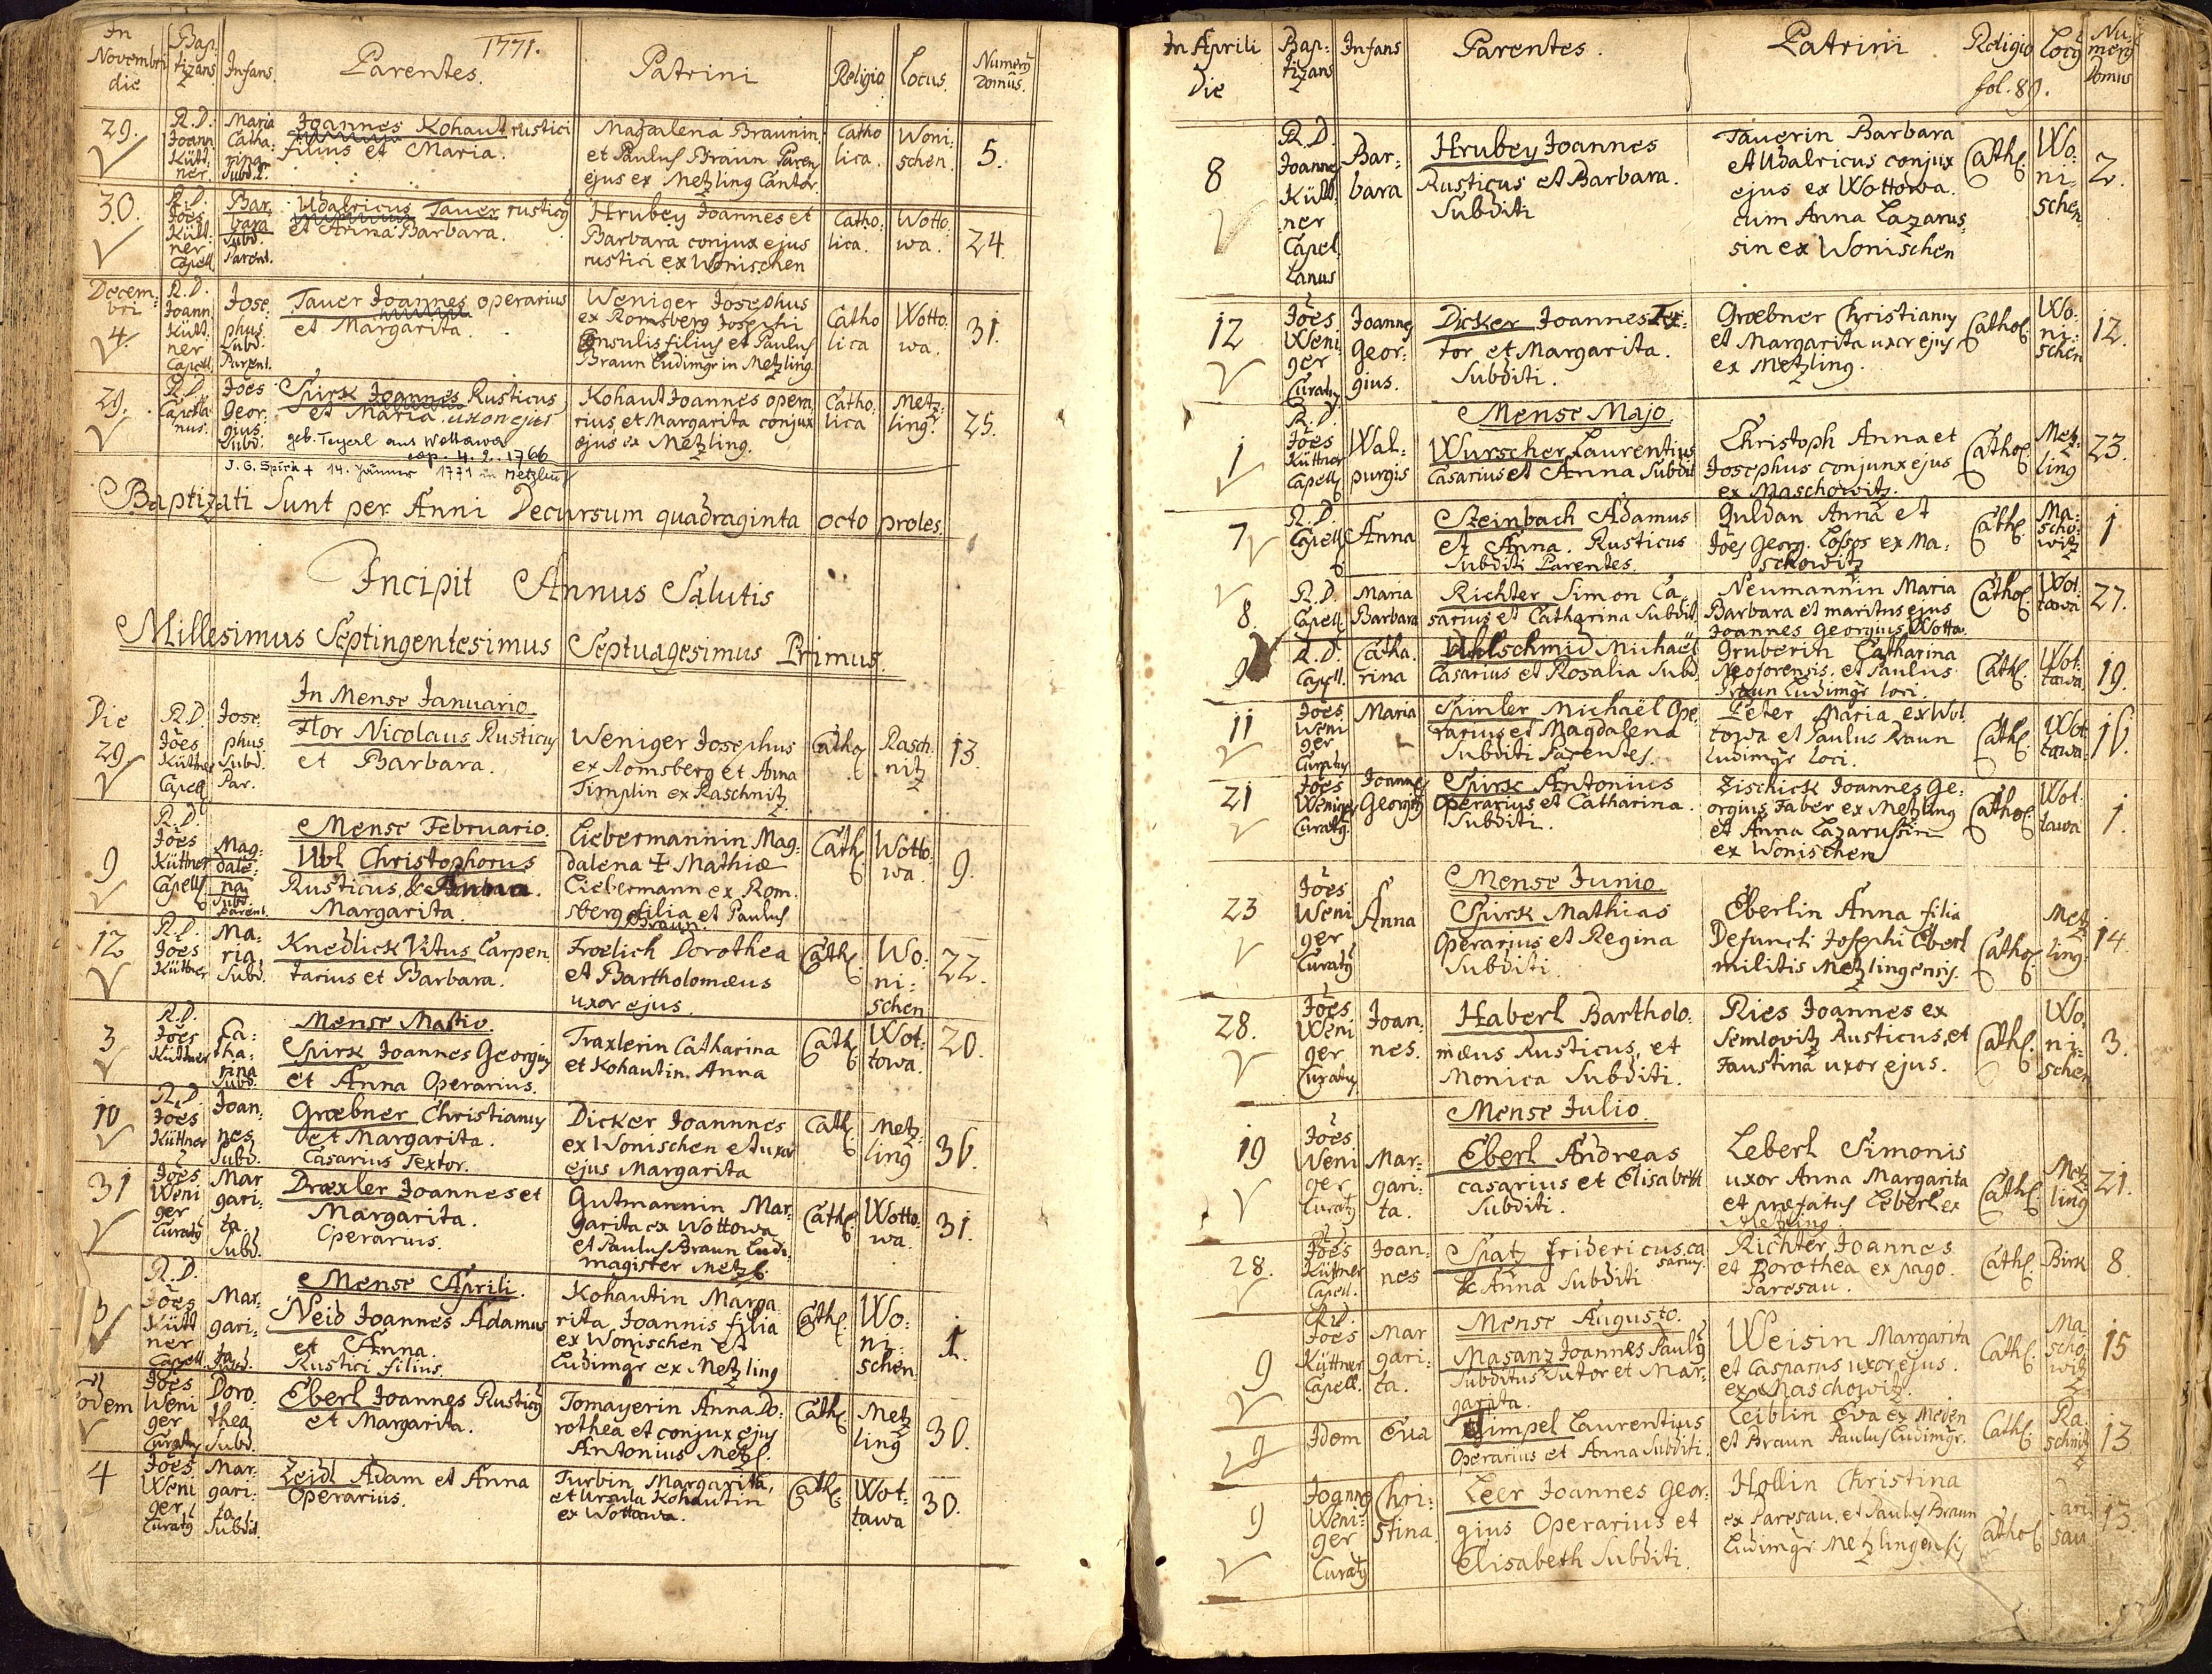 1771.
In Novembri die
Bap: tizans
Infans
Parentes.
Patrini
Religio
Locus.
Numerus Domûs.
29.
R.D. Joann Kütt: ner.
Maria Catha: rina Subd.
Joannes Kohaut rustici
filius et Maria.
Magdalena Braunin.
et Paulus Braun Paren
ejus ex Metzling Cantor.
Catho lica.
Woni: schen
5.
30.
R.D. Jões Kütt: ner Capell.
Bar: bara Subd. Parent.
Udalricus Tauer rusticus
et Anna Barbara.
Hrubey Joannes et
Barbara conjux ejus
rustici ex Wonischen
Catho: lica.
Wotto: wa.
24.
Decem: bri
4.
R.D. Joann. Kütt. ner Capell.
Jose: phus Subd. Parent.
Tauer Joannes operarius
et Margarita.
Weniger Josephus
ex Romsberg Josephi
Consulis filius et Paulus
Braun Ludimgr in Metzling
Catho lica
Wotto: wa.
31.
29.
R.D. Capella nus.
Jões Geor: gius Subd.
Spirk Joannes Rusticus
et Maria uxor ejus
geb. Teyerl aus Wottawa
cop. 4. 2. 1766
J. G. Spirk + 14. Jänner 1771 in Metzling
Kohaut Joannes opera:
rius, et Margarita conjux
ejus ex Metzling.
Catho: lica
Metz: ling.
25.
Baptizati Sunt per Anni Decursum quadraginta octo proles.
Incipit Annus Salutis
Millesimus Septingentesimus Septuagesimus Primus.
In Mense Januario
Die
29.
R.D. Jões Küttner Capell
Jose: phus Subd. Par.
Flor Nicolaus Rusticus
et Barbara.
Weniger Josephus
ex Romsberg et Anna
Timplin ex Raschnitz
Catho
Rasch: nitz
13.
Mense Februario.
9
R.D. Jões Küttner Capell
Mag: dale: na Subd. parent.
Ubl Christophorus
Rusticus, &
Margarita.
Liebermannin Mag:
dalena + Mathiæ
Liebermann ex Rom:
sberg filia et Paulus
Braun.
Cath
Wotto: wa
9.
12
R.D. Jões Küttner
Ma: ria Subd.
Knedlick Vitus Carpen
tarius et Barbara.
Froelich Dorothea
et Bartholomæus
uxor ejus.
Cath
Wo: ni: schen
22.
Mense Martio.
3
R.D. Jões Küttner
Ca: tha: rina Subd.
Spirk Joannes Georgius
et Anna Operarius.
Traxlerin Catharina
et Kohautin Anna
Cath
Wot: towa.
20.
10
R.D. Jões Küttner
Joan: nes Subd.
Græbner Christianus
et Margarita.
Casarius Textor.
Dicker Joannnes
ex Wonischen et uxor
ejus Margarita
Cath
Metz: ling
36.
31
Jões Weni ger Curatus
Mar gari: ta. Subd.
Dræxler Joannes et
Margarita.
Operarius.
Gutmannin Mar:
garita ex Wottowa
et Paulus Braun Ludi
magister Metzl.
Cath
Wotto: wa.
31.
Mense Aprili.
3
R.D. Jões Kütt ner Capell.
Mar: gari: ta Subd.
Neid Joannes Adamus
et Anna.
Rustici filius
Kohautin Marga:
rita Joannis filia
ex Wonischen et
Ludimgr ex Metzling
Cath
Wo: ni: schen
1.
eodem
Jões Weni ger Curatus
Doro: thea Subd.
Eberl Joannes Rusticus
et Margarita.
Tomayerin Anna Do:
rothea et conjux ejus
Antonius Metzl.
Cath
Metz ling
30.
4
Jões Weni ger Curatus
Mar: gari: ta Subdit.
Zeidl Adam et Anna
Operarius.
Turbin Margarita,
et Ursula Kohautin
ex Wottawa.
Cath
Wot: tawa
30.
In Aprili Die
Bap: tizans
Infans
Parentes.
Patrini
Religio
fol. 89.
Locus
Numerus Domus
8
R.D. Joannes Kütt ner Capel lanus
Bar: bara
Hrubey Joannes
Rusticus et Barbara.
Subditi
Tauerin Barbara
et Udalricus conjux
ejus ex Wottowa.
cum Anna Lazarus:
sin ex Wonischen
Cath
Wo: ni: schen
2.
12
Jões Weni ger Curatus
Joannes Geor: gius.
Dicker Joannes Tex:
tor et Margarita.
Subditi.
Græbner Christianus
et Margarita uxor ejus
ex Metzling.
Cathol
Wo: ni: schen
12.
Mense Majo.
1
R.D. Jões Küttner Capell
Wal: purgis
Wurscher Laurentius
Casarius et Anna Subdit
Christoph Anna et
Josephus conjunx ejus
ex Maschowitz.
Cathol
Metz ling
23.
7
R.D. Capell
Anna
Steinbach Adamus
et Anna. Rusticus
Subditi Parentes.
Guldan Anna et
Jões Georg. Lossos ex Ma:
schowitz
Cath
Ma: scho: witz
1
8.
R.D. Capell
Maria Barbara
Richter Simon Ca:
sarius et Catharina Subdit
Neumannin Maria
Barbara et maritus ejus
Joannes Georgius Wotta
Cathol
Wot: tawa
27.
9
R.D. Capell.
Catha: rina
Uhlschmid Michaël
Casarius et Rosalia Subd.
Gruberin Catharina
Neoforensis. et Paulus
Braun Ludimgr loci.
Cath
Wot: tawa
19.
11
Jões Weni ger Curatus
Maria
Spinler Michaël Ope:
rarius et Magdalena
Subditi Parentes.
Peter Maria ex Wot
towa et Paulus Braun
Ludimgr loci.
Cath
Wot tawa
16.
21
Jões Weniger Curatus
Joannes Georgius
Spirk Antonius
Operarius et Catharina.
Subditi.
Zischick Joannes Ge:
orgius Faber ex Metzling
et Anna Lazarussin
ex Wonischen
Cathol
Wot tawa
1.
Mense Junio.
23
Jões Weni ger Curatus
Anna
Spirk Mathias
Operarius et Regina
Subditi.
Eberlin Anna filia
Defuncti Josephi Eberl
militis Metzlingensis.
Cathol
Metz ling
14.
28.
Jões Weni ger Curatus
Joan: nes.
Haberl Bartholo:
mæus Rusticus, et
Monica Subditi.
Ries Joannes ex
Semlovitz Rusticus, et
Faustina uxor ejus.
Cath
Wo: ni: schen
3.
Mense Julio.
19
Jões Weni ger Curatus
Mar: gari: ta.
Eberl Andreas
casarius et Elisabeth
Subditi.
Leberl Simonis
uxor Anna Margarita
et præfatus Leberl ex
Metzling.
Cath
Metz ling
21.
28.
Jões Küttner Capell.
Joan: nes
Spatz Fridericus ca
sarius
& Anna Subditi
Richter Joannes
et Dorothea ex pago
Paresau.
Cath
Birk
8.
Mense Augusto.
9
R.D. Jões Küttner Capell.
Mar gari: ta.
Masanz Joannes Paulus
Subditus Sutor et Mar:
garita.
Weisin Margarita
et Casparus uxor ejus.
ex Maschowitz.
Cath
Ma scho: witz
15
9
Idem
Eva
Timpel Laurentius
Operarius et Anna Subditi.
Leiblin Eva ex Meden
et Braun Paulus Ludimgr.
Cath
Ra: schnitz
13
9
Joannes Weni: ger Curatus
Chri: stina
Leer Joannes Geor:
gius Operarius et
Elisabeth Subditi.
Hollin Christina
ex Paresau, et Paulus Braun
Ludimgr Metzlingensis
Cathol
Pari sau
13.